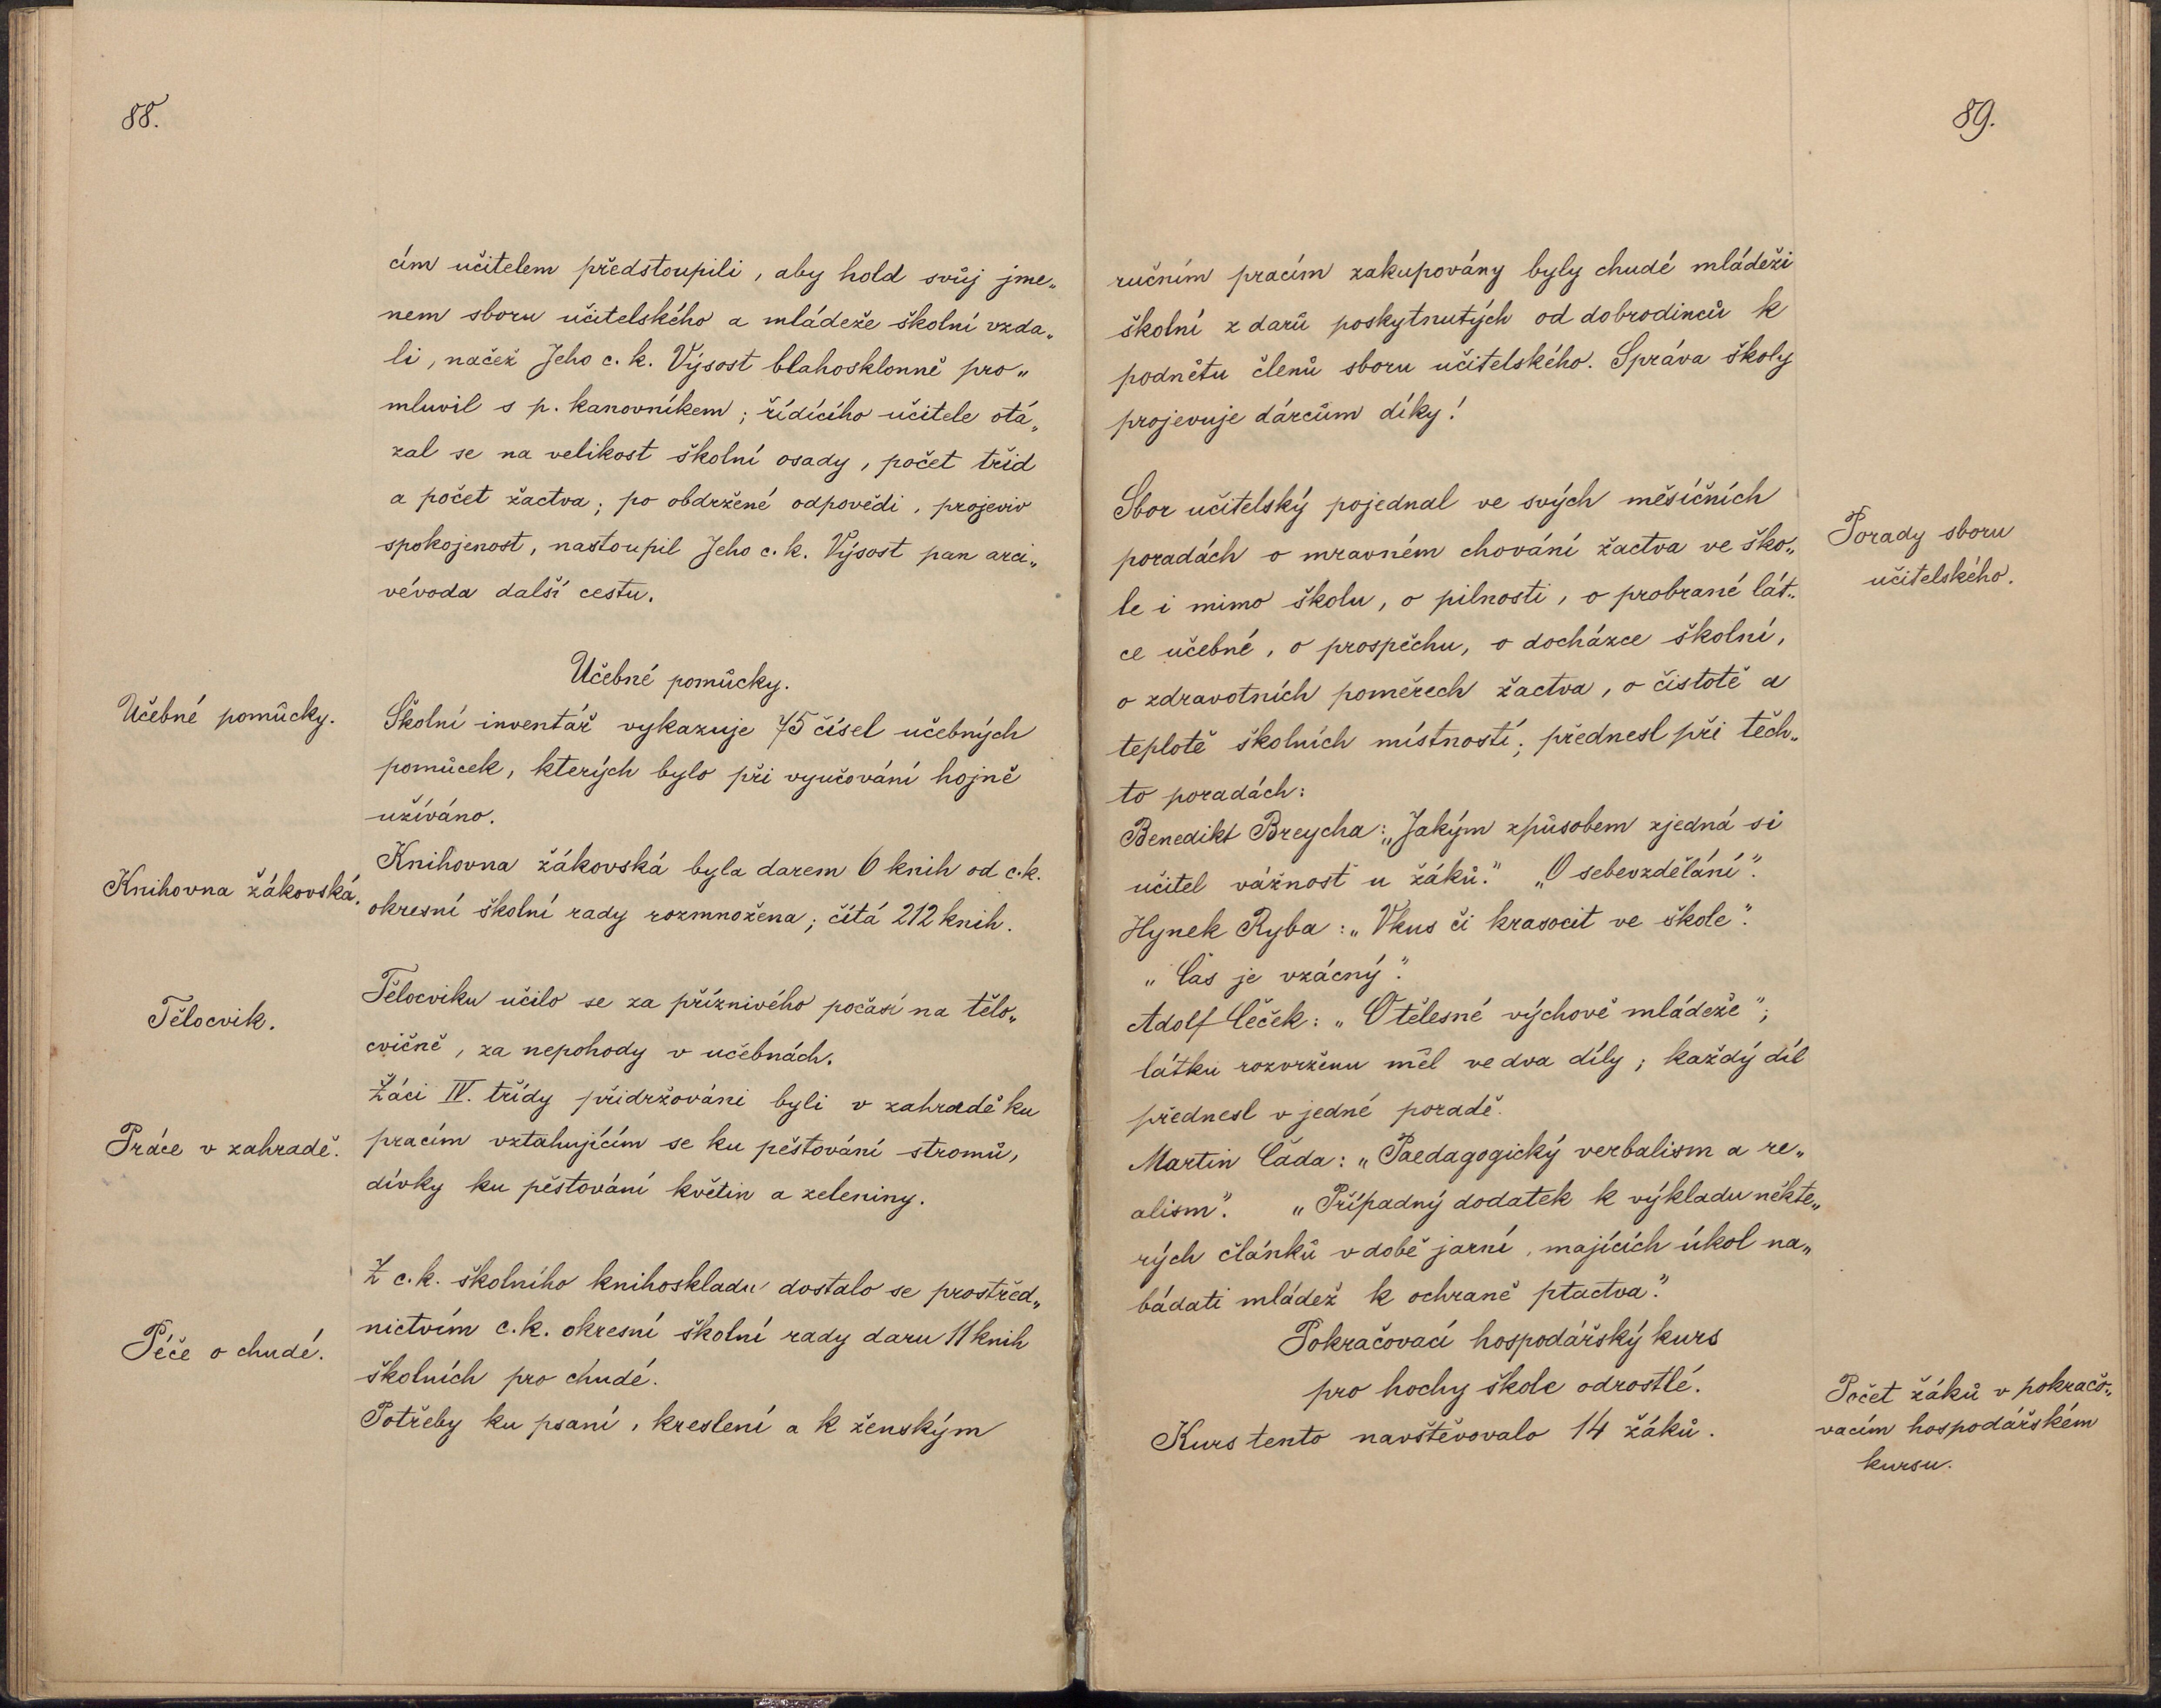 88.
cím učitelem předstoupili, aby hold svůj jme„
nem sboru učitelského a mládeže školní vzda„
li, načež Jeho c. k. Výsost blahosklonně pro„
mluvil s p. kanovníkem; řídícího učitele otá„
zal se na velikost školní osady, počet tříd
a počet žactva; po obdržené odpovědi, projeviv
spokojenost, nastoupil Jeho c. k. Výsost pan arci„
vévoda další cestu.
Učebné pomůcky.
Učebné pomůcky.
Školní inventář vykazuje 75 čísel učebných
pomůcek, kterých bylo při vyučování hojně
užíváno.
Knihovna žákovská.
Knihovna žákovská byla darem 6 knih od c.k.
okresní školní rady rozmnožena; čítá 212 knih.
Tělocvik.
Tělocviku učilo se za příznivého počasí na tělo„
cvičně, za nepohody v učebnách.
Žáci IV. třídy přidržováni byli v zahradě ku
Práce v zahradě.
pracím vztahujícím se ku pěstování stromů,
dívky ku pěstování květin a zeleniny.
Z c.k. školního knihoskladu dostalo se prostřed„
Péče o chudé.
nictvím c.k. okresní školní rady daru 11 knih
školních pro chudé.
Potřeby ku psaní, kreslení a k ženským
89.
ručním pracím zakupovány byly chudé mládeži
školní z darů poskytnutých od dobrodinců k
podnětu členů sboru učitelského. Správa školy
projevuje dárcům díky!
Porady sboru
učitelského.
Sbor učitelský pojednal ve svých měsíčních
poradách o mravném chování žactva ve ško„
le i mimo školu, o pilnosti, o probrané lát„
ce učebné, o prospěchu, o docházce školní,
o zdravotních poměrech žactva, o čistotě a
teplotě školních místností; přednesl při těch„
to poradách:
Benedikt Breycha: „Jakým způsobem zjedná si
učitel vážnosť u žáků." „O sebevzdělání".
Hynek Ryba: „Vkus či krasocit ve škole".
„Čas je vzácný".
Adolf Čeček: „O tělesné výchově mládeže";
látku rozvrženu měl ve dva díly; každý díl
přednesl v jedné poradě.
Martin Čada: „Paedagogický verbalism a re„
alism". „Případný dodatek k výkladu někte„
rých článků v době jarní, majících úkol na„
bádati mládež k ochraně ptactva".
Pokračovací hospodářský kurs
pro hochy škole odrostlé.
Počet žáků v pokračo„
vacím hospodářském
kursu.
Kurs tento navštěvovalo 14 žáků.